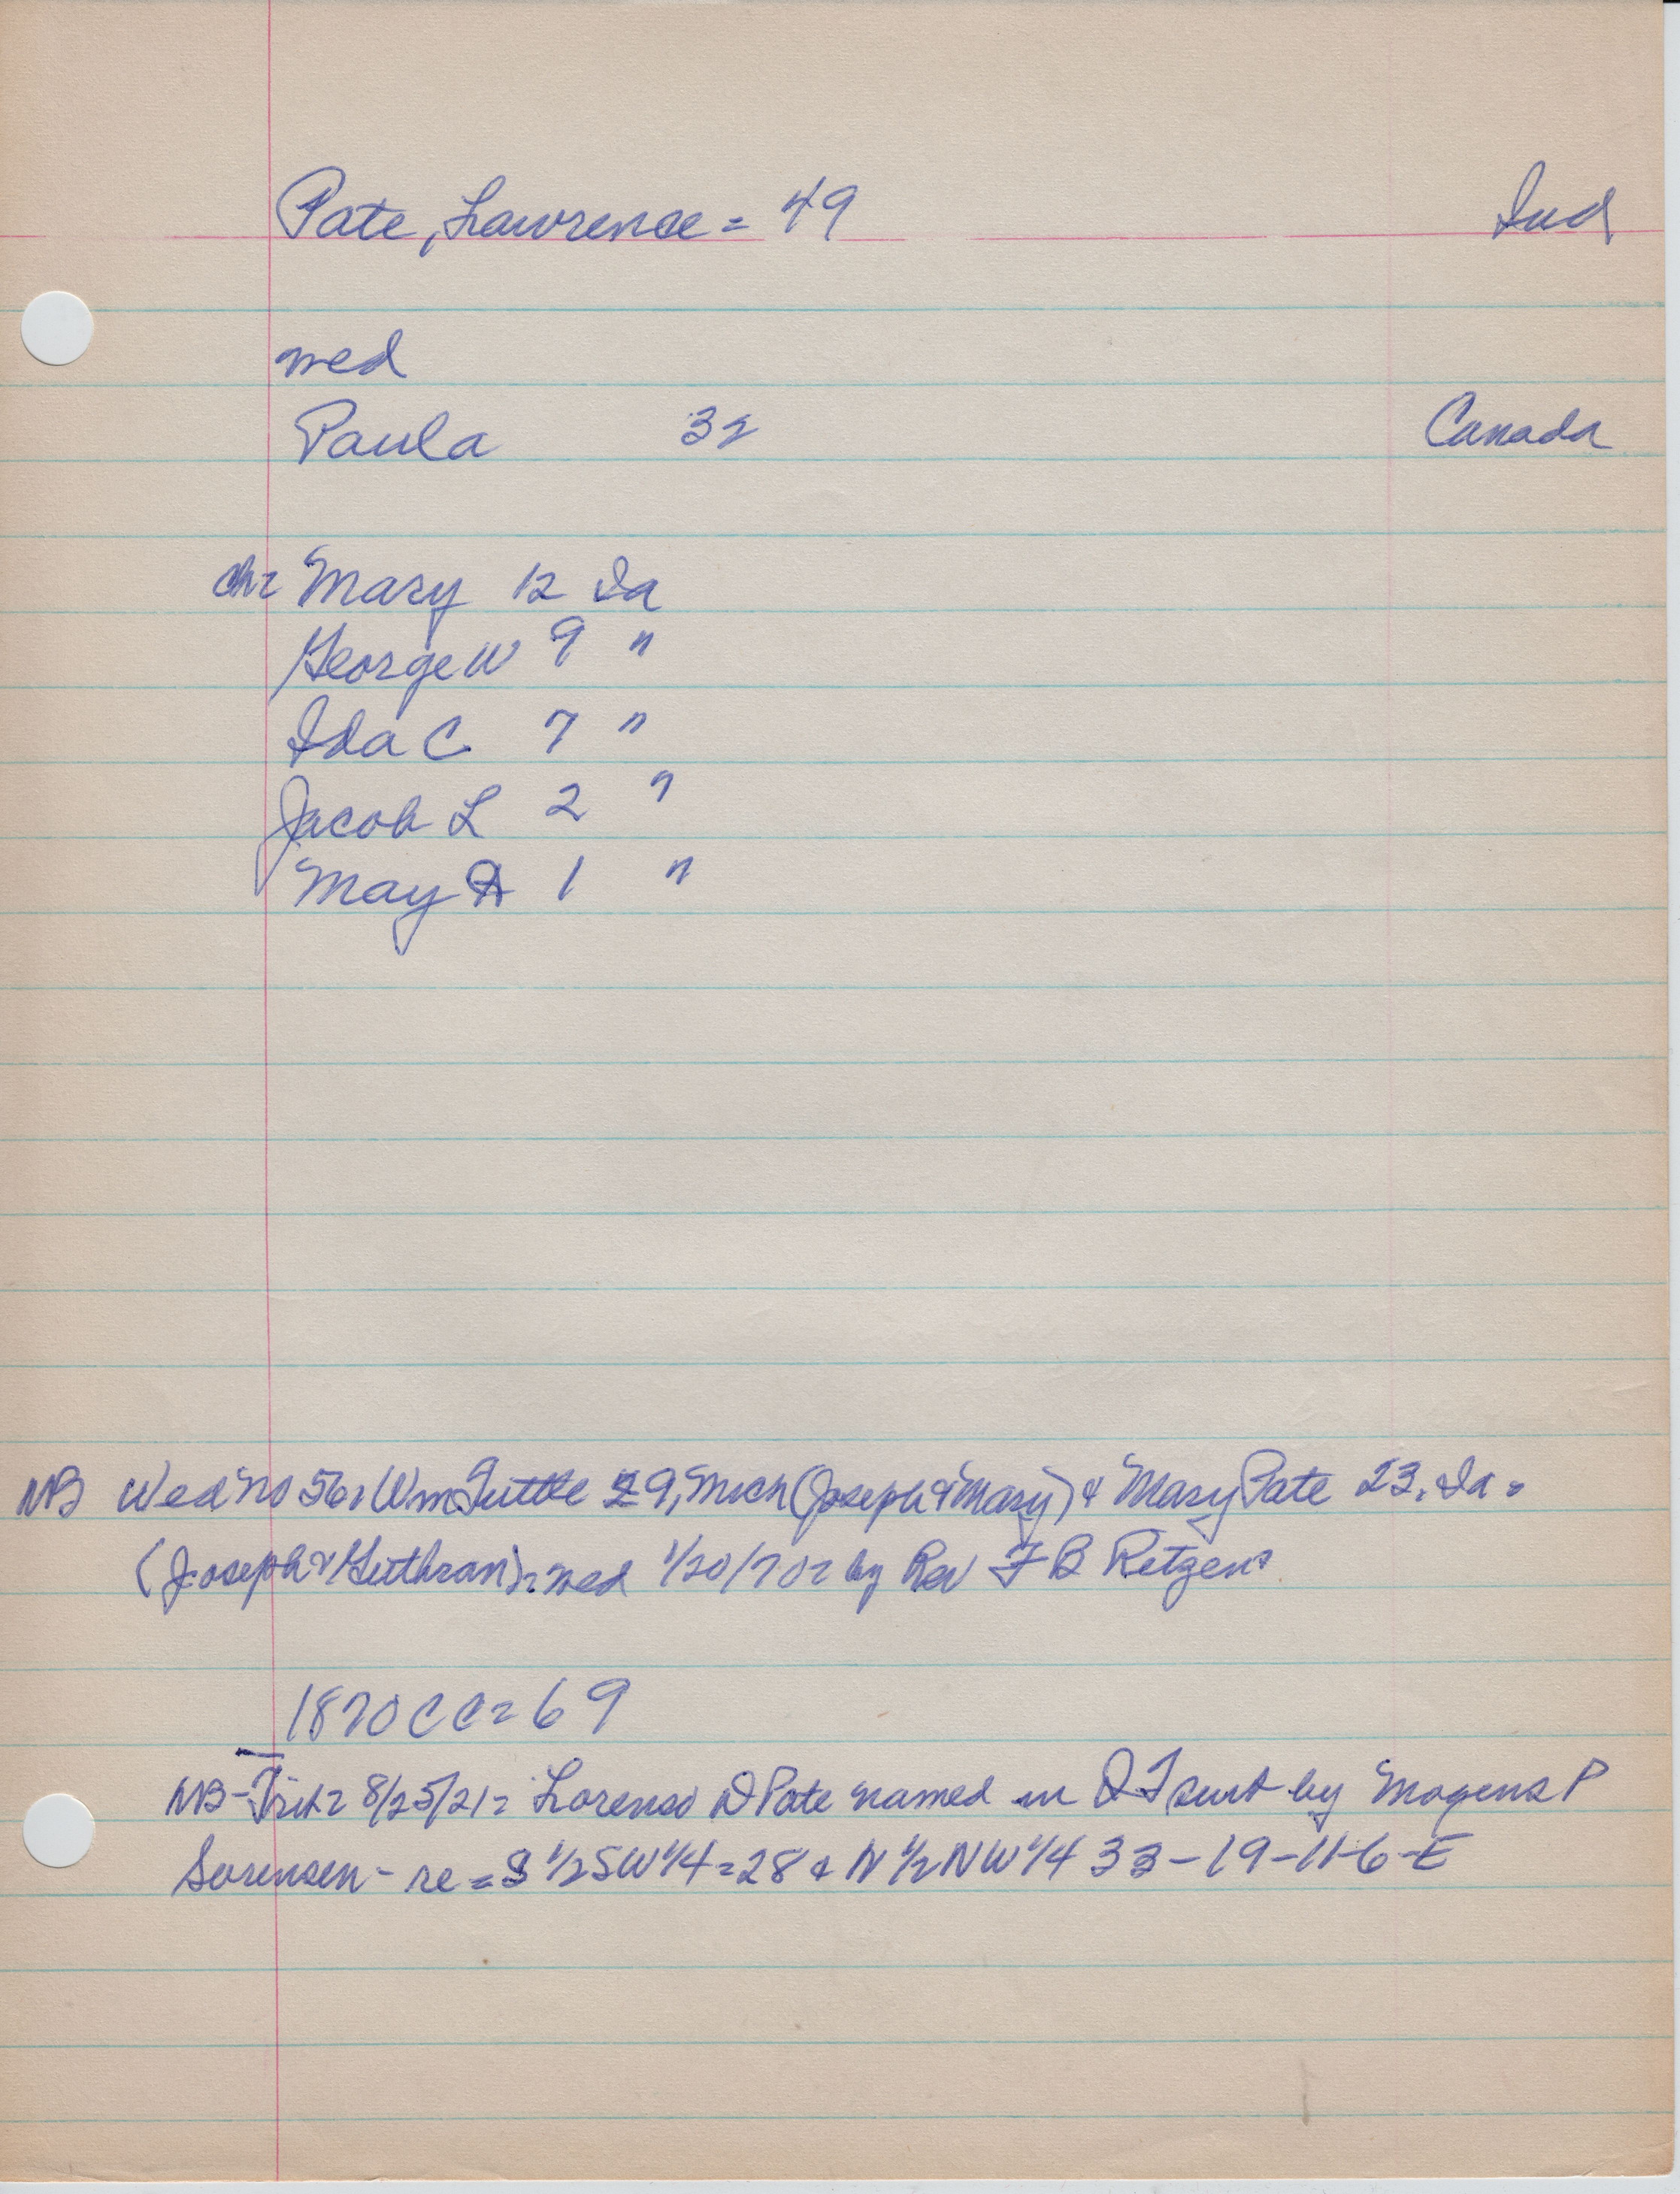 Pate, Lawrence = 49 Ind
wed
Paula 32 Canada
ch= Mary 12 Ia
George W 9 "
Ida C 7 "
Jacob L 2 "
May A 1 "
NB Wed No 56= Wm Tuttle 29, Mich (Joseph & Mary) & Mary Pate 23, Ia =
(Joseph & ) = wed 1/20/70= by Rev F B Retgers
1870 CC = 69
NB - Trib= 8/25/21= Lorenso D Pate named in QT suit by Mogens P
Sorensen - re = S 1/2 SW 1/4 = 28 & N 1/2 NW 1/4 33 - 19 - 11 - 6 - E